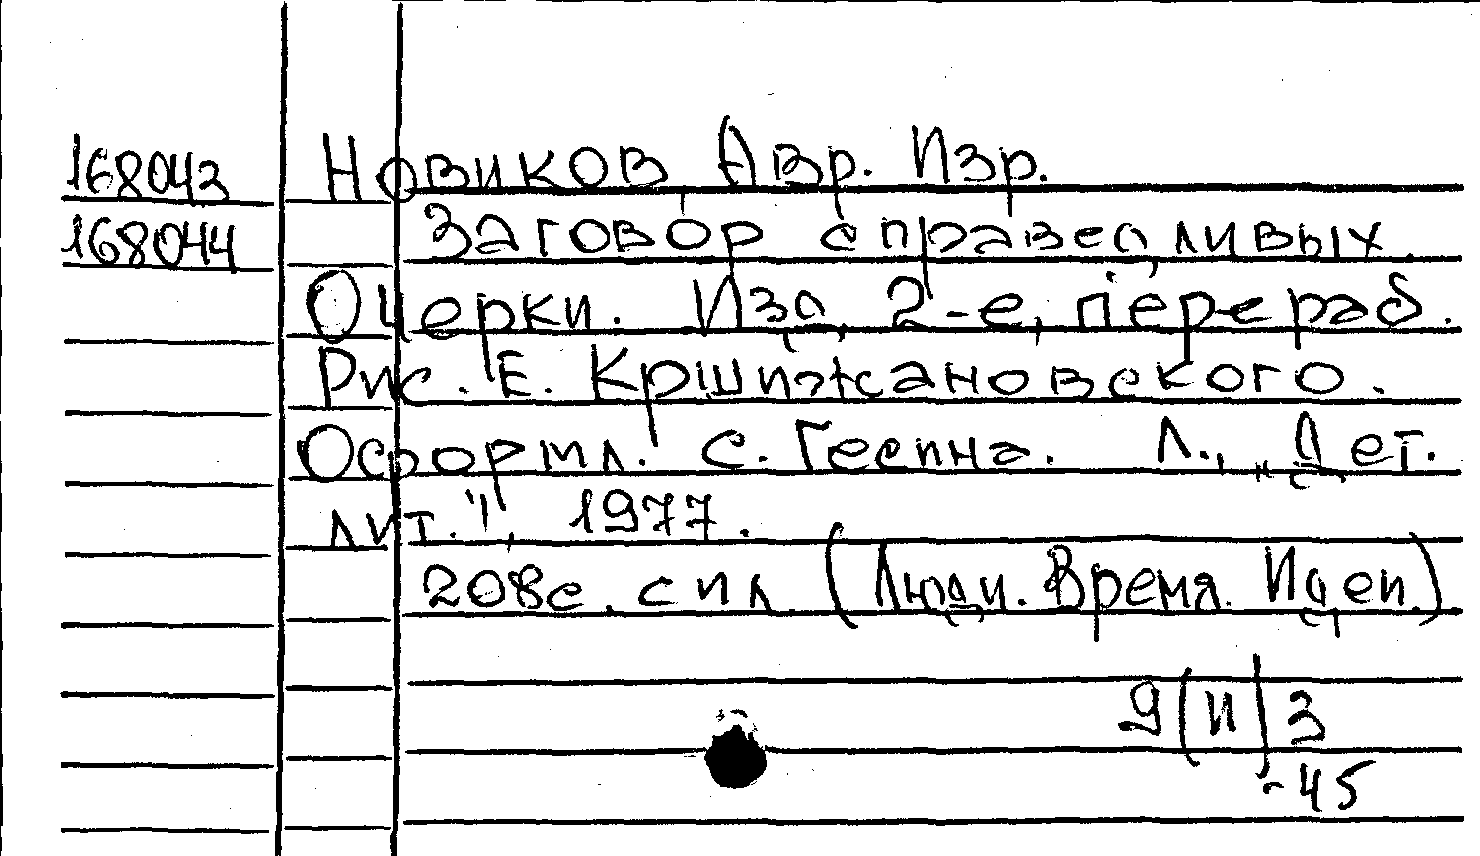 168043 Новиков Авр. Изр.
168044 Заговор справедливых.
Очерки. Изд. 2-е, перераб.
Рис. Е. Кршижановского.
Оформл. С. Гесина. Л., „Дет.
лит.", 1977.
208с. с ил. (Люди. Время. Идеи.)
9(И)3
-45